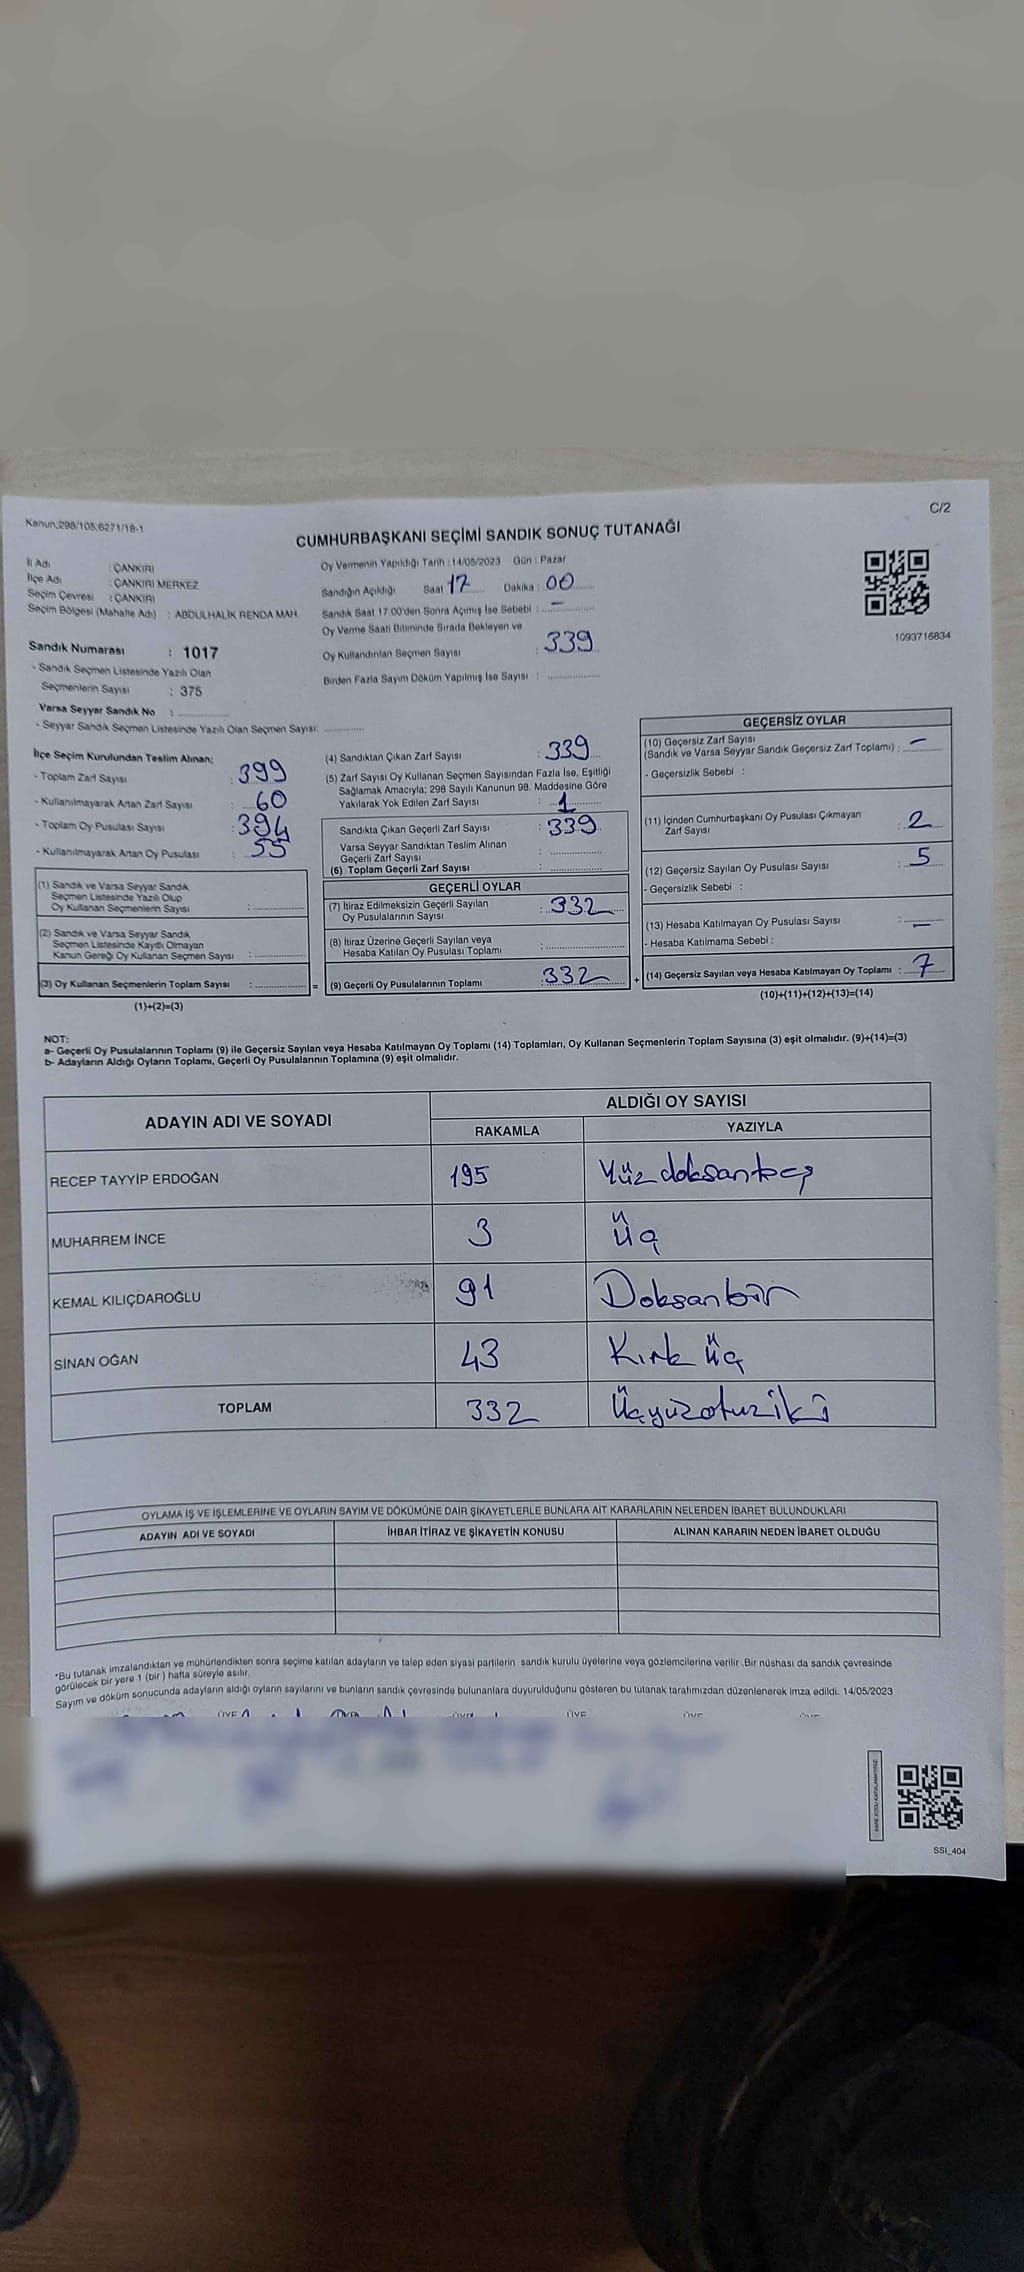 Kanun;298/105;6271/18-1
C/2
CUMHURBAŞKANI SEÇİMİ SANDIK SONUÇ TUTANAĞI
İl Adı : ÇANKIRI
İlçe Adı : ÇANKIRI MERKEZ
Seçim Çevresi : ÇANKIRI
Seçim Bölgesi (Mahalle Adı) : ABDULHALİK RENDA MAH.
Oy Vermenin Yapıldığı Tarih : 14/05/2023 Gün : Pazar
Sandığın Açıldığı Saat 17 Dakika : 00
Sandık Saat 17:00'den Sonra Açmış İse Sebebi : -
Oy Verme Saati Bitiminde Sırada Bekleyen ve
Oy Kullandırılan Seçmen Sayısı : 339
Birden Fazla Sayım Döküm Yapılmış İse Sayısı :
1093716834
Sandık Numarası : 1017
- Sandık Seçmen Listesinde Yazılı Olan
Seçmenlerin Sayısı : 375
Varsa Seyyar Sandık No :
- Seyyar Sandık Seçmen Listesinde Yazılı Olan Seçmen Sayısı:
İlçe Seçim Kurulundan Teslim Alınan;
- Toplam Zarf Sayısı : 399
- Kullanılmayarak Artan Zarf Sayısı : 60
- Toplam Oy Pusulası Sayısı : 394
- Kullanılmayarak Artan Oy Pusulası : 55
(1) Sandık ve Varsa Seyyar Sandık
Seçmen Listesinde Yazılı Olup
Oy Kullanan Seçmenlerin Sayısı :
(2) Sandık ve Varsa Seyyar Sandık
Seçmen Listesinde Kayıtlı Olmayan
Kanun Gereği Oy Kullanan Seçmen Sayısı :
(3) Oy Kullanan Seçmenlerin Toplam Sayısı : =
(1)+(2)=(3)
(4) Sandıktan Çıkan Zarf Sayısı : 339
(5) Zarf Sayısı Oy Kullanan Seçmen Sayısından Fazla İse, Eşitliği
Sağlamak Amacıyla; 298 Sayılı Kanunun 98. Maddesine Göre
Yakılarak Yok Edilen Zarf Sayısı : 1
Sandıkta Çıkan Geçerli Zarf Sayısı : 339
Varsa Seyyar Sandıktan Teslim Alınan
Geçerli Zarf Sayısı :
(6) Toplam Geçerli Zarf Sayısı :
GEÇERLİ OYLAR
(7) İtiraz Edilmeksizin Geçerli Sayılan
Oy Pusulalarının Sayısı : 332
(8) İtiraz Üzerine Geçerli Sayılan veya
Hesaba Katılan Oy Pusulası Toplamı :
(9) Geçerli Oy Pusulalarının Toplamı : 332 +
GEÇERSİZ OYLAR
(10) Geçersiz Zarf Sayısı
(Sandık ve Varsa Seyyar Sandık Geçersiz Zarf Toplamı) : -
- Geçersizlik Sebebi :
(11) İçinden Cumhurbaşkanı Oy Pusulası Çıkmayan
Zarf Sayısı : 2
(12) Geçersiz Sayılan Oy Pusulası Sayısı : 5
- Geçersizlik Sebebi :
(13) Hesaba Katılmayan Oy Pusulası Sayısı : -
- Hesaba Katılmama Sebebi :
(14) Geçersiz Sayılan veya Hesaba Katılmayan Oy Toplamı : 7
(10)+(11)+(12)+(13)=(14)
NOT:
a- Geçerli Oy Pusulalarının Toplamı (9) ile Geçersiz Sayılan veya Hesaba Katılmayan Oy Toplamı (14) Toplamları, Oy Kullanan Seçmenlerin Toplam Sayısına (3) eşit olmalıdır. (9)+(14)=(3)
b- Adayların Aldığı Oyların Toplamı, Geçerli Oy Pusulalarının Toplamına (9) eşit olmalıdır.
ADAYIN ADI VE SOYADI ALDIĞI OY SAYISI
RAKAMLA YAZIYLA
RECEP TAYYİP ERDOĞAN 195 Yüzdoksanbeş
MUHARREM İNCE 3 Üç
KEMAL KILIÇDAROĞLU 91 Doksanbir
SİNAN OĞAN 43 Kırk üç
TOPLAM 332 Üçyüzotuziki
OYLAMA İŞ VE İŞLEMLERİNE VE OYLARIN SAYIM VE DÖKÜMÜNE DAİR ŞİKAYETLERLE BUNLARA AİT KARARLARIN NELERDEN İBARET BULUNDUKLARI
ADAYIN ADI VE SOYADI İHBAR İTİRAZ VE ŞİKAYETİN KONUSU ALINAN KARARIN NEDEN İBARET OLDUĞU
*Bu tutanak imzalandıktan ve mühürlendikten sonra seçime katılan adayların ve talep eden siyasi partilerin sandık kurulu üyelerine veya gözlemcilerine verilir .Bir nüshası da sandık çevresinde
görülecek bir yere 1 (bir ) hafta süreyle asılır.
Sayım ve döküm sonucunda adayların aldığı oyların sayılarını ve bunların sandık çevresinde bulunanlara duyurulduğunu gösteren bu tutanak tarafımızdan düzenlenerek imza edildi. 14/05/2023
ÜYE ÜYE ÜYE ÜYE ÜYE
SSI_404